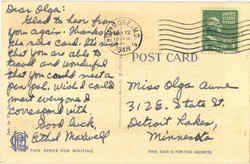 Dear Olga:
Glad to hear from
you again. Thanks for
the nice card. It's nice
that you are able to
travel and wonderful
that you could meet a
pen pal. Wish I could
meet everyone I
correspond with.
Good luck,
Ethel Maxwell
THIS SPACE FOR WRITING
POST CARD
Miss Olga Aune
312 E. State St.
Detroit Lakes,
Minnesota
THIS SIDE IS FOR THE ADDRESS